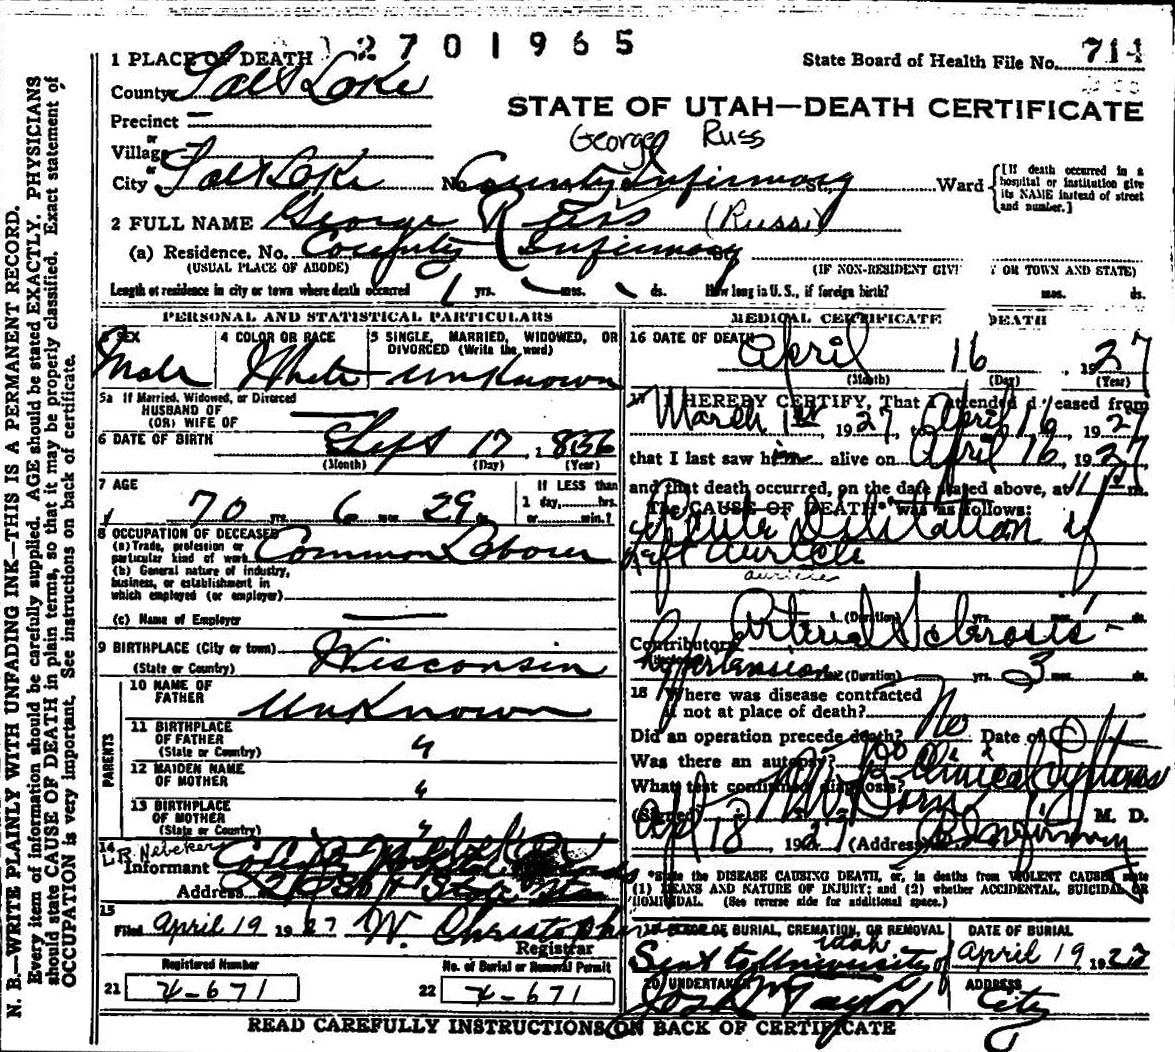 2701965
State Board of Health File No. 714
1 PLACE OF DEATH
County Salt Lake
STATE OF UTAH—DEATH CERTIFICATE
Precinct —
George Russ
or
Village —
or
City Salt Lake No. County Infirmary St., Ward
[If death occurred in a hospital or institution give its NAME instead of street and number.]
2 FULL NAME George Russ (Russ)
(a) Residence. No. County Infirmary St.
(USUAL PLACE OF ABODE) (IF NON-RESIDENT GIV OR TOWN AND STATE)
Length of residence in city or town where death occurred 1 yrs. — mos. ds. How long in U.S., if foreign birth? mos. ds.
PERSONAL AND STATISTICAL PARTICULARS
3 SEX
Male
4 COLOR OR RACE
White
5 SINGLE, MARRIED, WIDOWED, OR DIVORCED (Write the word)
Unknown
5a If Married, Widowed, or Divorced
HUSBAND OF
(OR) WIFE OF —
6 DATE OF BIRTH Sept 17, 1856
(Month) (Day) (Year)
7 AGE
70 yrs. 6 mos. 29 ds.
IF LESS than
1 day, hrs.
or min.?
8 OCCUPATION OF DECEASED
(a) Trade, profession or
particular kind of work Common Laborer
(b) General nature of industry,
business, or establishment in
which employed (or employer)
(c) Name of Employer —
9 BIRTHPLACE (City or town)
(State or Country) Wisconsin
PARENTS
10 NAME OF
FATHER Unknown
11 BIRTHPLACE
OF FATHER "
(State or Country)
12 MAIDEN NAME
OF MOTHER "
13 BIRTHPLACE
OF MOTHER "
(State or Country)
14 L.B. Nebeker
Informant
Address
15
Filed April 19 1927 W. Christopherson
Registrar
Registered Number
21 X-671
No. of Burial or Removal Permit
22 X-671
MEDICAL CERTIFICATE DEATH
16 DATE OF DEATH
April 16, 1927
(Month) (Day) (Year)
17 I HEREBY CERTIFY, That I attended deceased from
March 1st, 1927, to April 16, 1927
that I last saw him alive on April 16, 1927
and that death occurred, on the date stated above, at 11 P m.
The CAUSE OF DEATH* was as follows:
Acute Dilitation of
Left Auricle
auricle
(Duration) yrs. mos. ds.
Contributory Arterial Sclerosis -
Hypertension (Duration) yrs. 3 mos. ds.
18 Where was disease contracted
if not at place of death?
Did an operation precede death? No Date of
Was there an autopsy? No
What test confirmed diagnosis? Clinical Symptoms
(Signed) M. D.
Apl 18, 1927 (Address) Co Infirmary
*State the DISEASE CAUSING DEATH, or, in deaths from VIOLENT CAUSES, state
(1) MEANS AND NATURE OF INJURY; and (2) whether ACCIDENTAL, SUICIDAL or
HOMICIDAL. (See reverse side for additional space.)
19 PLACE OF BURIAL, CREMATION, OR REMOVAL
Sent to University of Utah
DATE OF BURIAL
April 19 1927
20 UNDERTAKER
Jos Wm Taylor
ADDRESS
City
READ CAREFULLY INSTRUCTIONS ON BACK OF CERTIFICATE
N. B.—WRITE PLAINLY WITH UNFADING INK—THIS IS A PERMANENT RECORD.
Every item of information should be carefully supplied. AGE should be stated EXACTLY. PHYSICIANS
should state CAUSE OF DEATH in plain terms, so that it may be properly classified. Exact statement of
OCCUPATION is very important. See instructions on back of certificate.